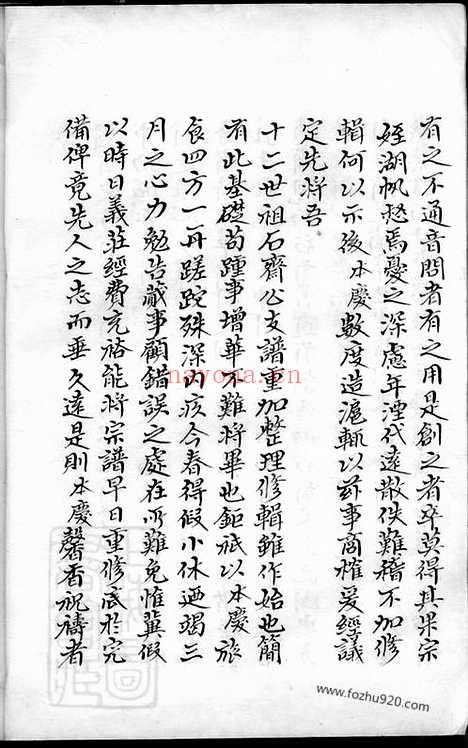 有之不通音問者有之用是創之者卒莫得其果宗
姪湖帆愁焉憂之深慮年湮代遠散佚難稽不加修
輯何以示後本慶數度造滬輒以茲事商榷爰經議
定先將吾
十二世祖石齋公支譜重加整理修輯雖作始也簡
有此基礎苟踵事增華不難將畢也鉅祇以本慶旅
食四方一再蹉跎殊深內疚今春得假小休迺竭三
月之心力勉告蕆事顧錯誤之處在所難免惟冀假
以時日義莊經費充裕能將宗譜早日重修底於完
備俾竟先人之志而垂久遠是則本慶馨香祝禱者
nayona.cn
www.fozhu920.com